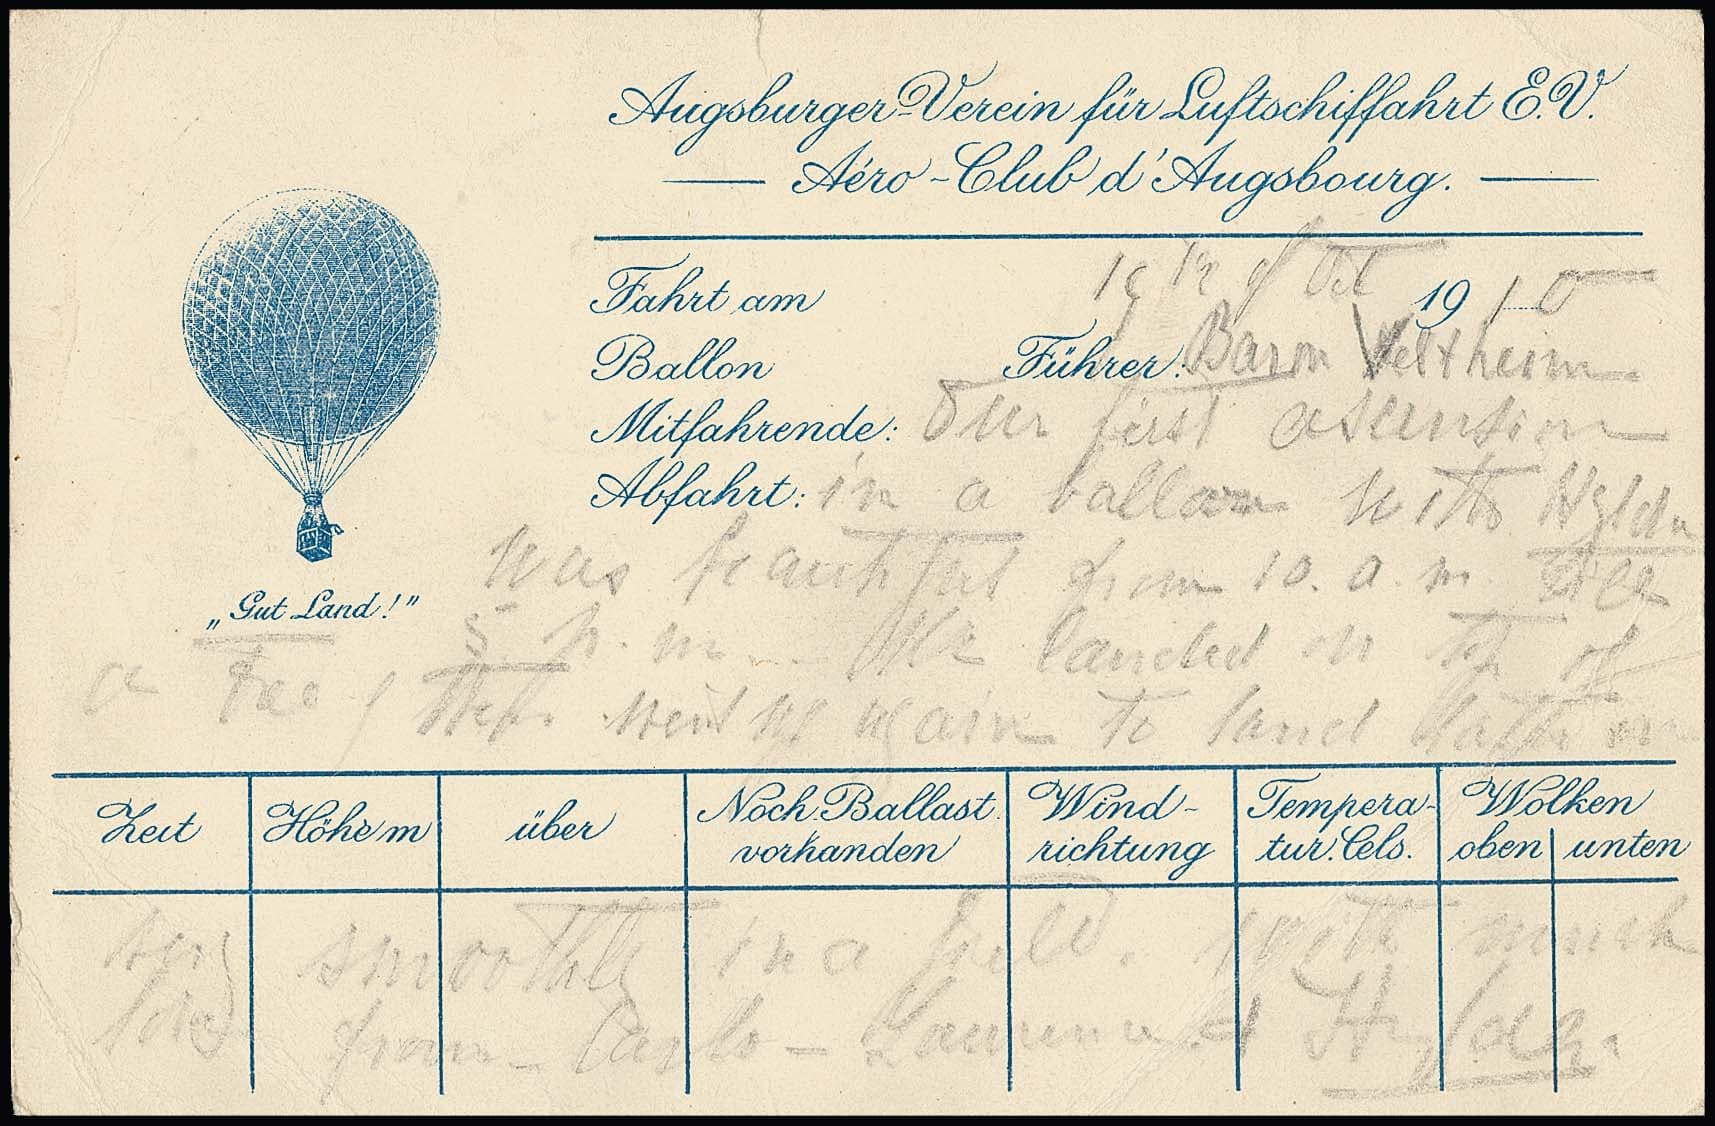 Augsburger-Verein für Luftschiffahrt E.V.
Aéro-Club d'Augsbourg.
Fahrt am 19th of Oct 1910
Ballon Führer: Baron Veltheim
Mitfahrende: Our first asension
Abfahrt: in a balloon with
was beautiful from 10. a. m. till
„Gut Land!"
5. p. m. We landed on top of
a Tree, then went up again to land
Zeit Höhe m über Noch Ballast vorhanden Wind-richtung Tempera-tur. Cels. Wolken oben unten
very smoothly in a field. With much
love from Carlo